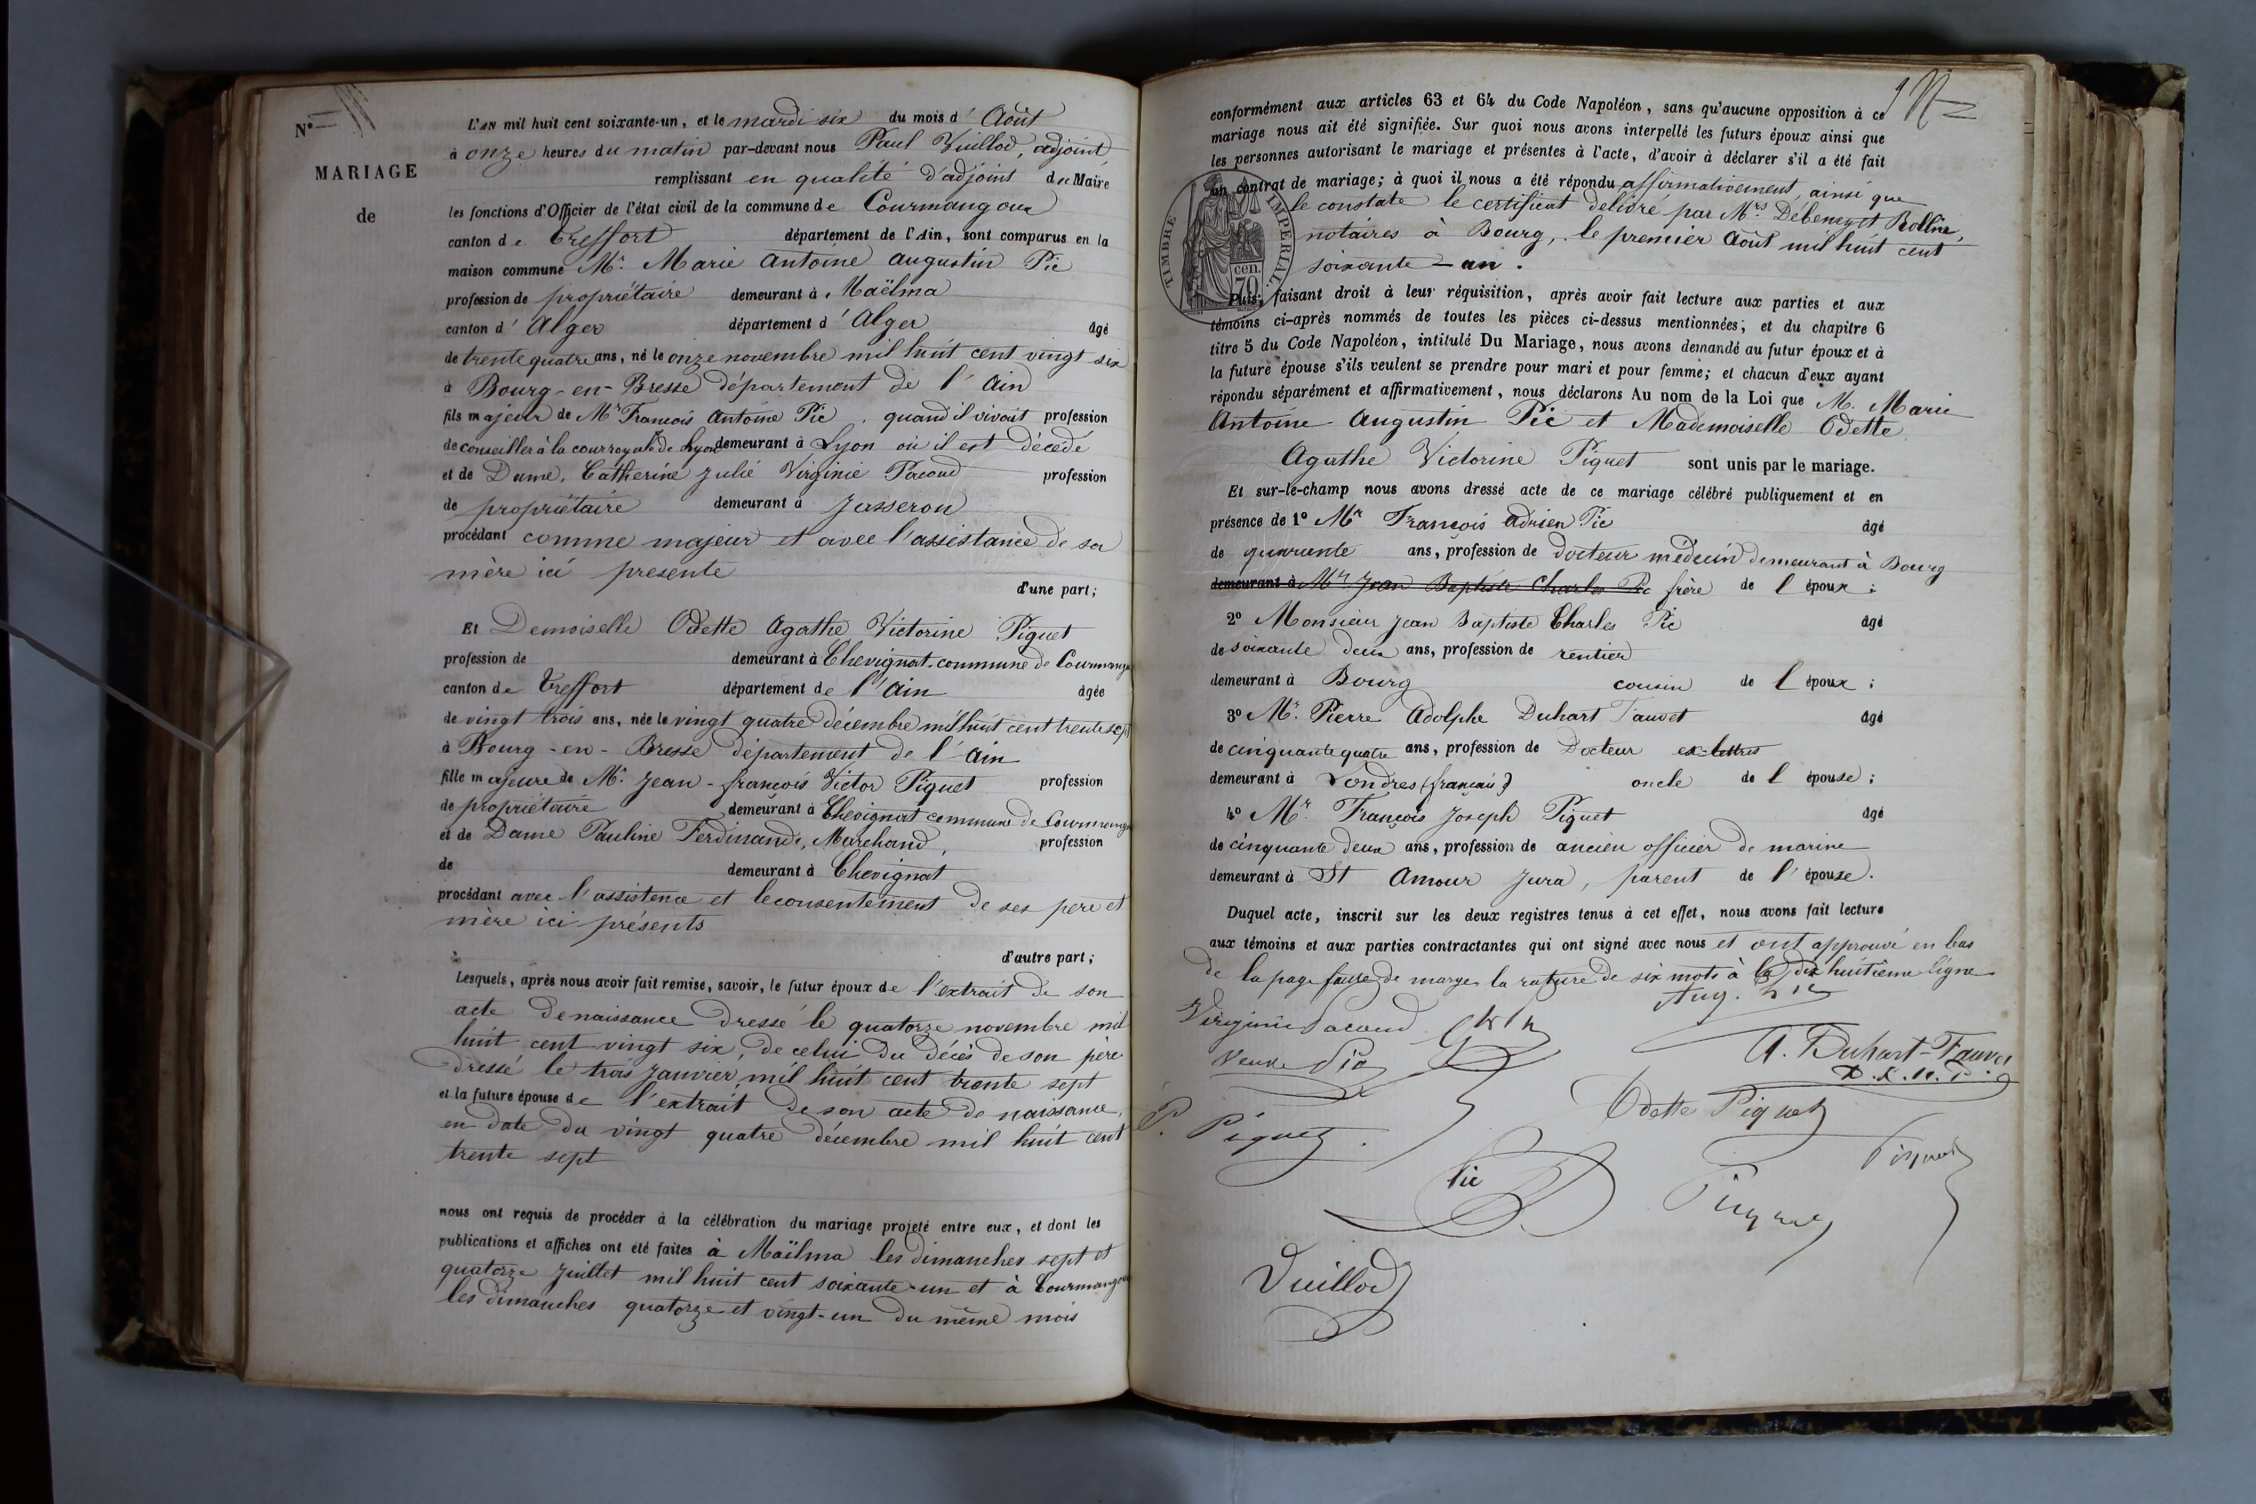 N°
MARIAGE
de
L'AN mil huit cent soixante-un, et le mardi six du mois d'Août
à onze heures du matin par-devant nous Paul Vuillod, adjoint
remplissant en qualité d'adjoint de Maire
les fonctions d'Officier de l'état civil de la commune de Courmangoux
canton de Treffort département de l'Ain, sont comparus en la
maison commune Mr. Marie Antoine Augustin Pic
profession de propriétaire demeurant à Maëlma
canton d'Alger département d'Alger âgé
de trente quatre ans, né le onze novembre mil huit cent vingt six
à Bourg-en-Bresse département de l'Ain
fils majeur de Mr François Antoine Pic, quand il vivait profession
de conseiller à la cour royale de Lyon demeurant à Lyon où il est décédé
et de Dame, Catherine Julie Virginie Pacoud profession
de propriétaire demeurant à Jasseron
procédant comme majeur et avec l'assistance de sa
mère ici presente
d'une part;
Et Demoiselle Odette Agathe Victorine Piquet
profession de demeurant à Chevignat commune de Courmangoux
canton de Treffort département de l'Ain âgée
de vingt trois ans, née le vingt quatre décembre mil huit cent trente sept
à Bourg-en-Bresse département de l'Ain
fille majeure de Mr. Jean-françois Victor Piquet profession
de propriétaire demeurant à Chevignat commune de Courmangoux
et de Dame Pauline Ferdinande, Marchand, profession
de demeurant à Chevignat
procédant avec l'assistence et le consentement de ses pere et
mère ici présents
d'autre part;
Lesquels, après nous avoir fait remise, savoir, le futur époux de l'extrait de son
acte de naissance dressé le quatorze novembre mil
huit cent vingt six, de celui du décès de son père
dressé le trois Janvier mil huit cent trente sept
et la future épouse de l'extrait de son acte de naissance,
en date du vingt quatre décembre mil huit cent
trente sept
nous ont requis de procéder à la célébration du mariage projeté entre eux, et dont les
publications et affiches ont été faites à Maïlma les dimanches sept et
quatorze Juillet mil huit cent soixante-un et à Courmangoux
les dimanches quatorze et vingt-un du même mois
conformément aux articles 63 et 64 du Code Napoléon, sans qu'aucune opposition à ce
mariage nous ait été signifiée. Sur quoi nous avons interpellé les futurs époux ainsi que
les personnes autorisant le mariage et présentes à l'acte, d'avoir à déclarer s'il a été fait
un contrat de mariage; à quoi il nous a été répondu affirmativement, ainsi que
le constate le certificat délivré par Mrs Débeney et Rollin,
notaires à Bourg, le premier Août mil huit cent
soixante-un.
TIMBRE IMPÉRIAL
70 cen.
Puis, faisant droit à leur réquisition, après avoir fait lecture aux parties et aux
témoins ci-après nommés de toutes les pièces ci-dessus mentionnées; et du chapitre 6
titre 5 du Code Napoléon, intitulé Du Mariage, nous avons demandé au futur époux et à
la future épouse s'ils veulent se prendre pour mari et pour femme; et chacun d'eux ayant
répondu séparément et affirmativement, nous déclarons Au nom de la Loi que M. Marie
Antoine Augustin Pic et Mademoiselle Odette
Agathe Victorine Piquet sont unis par le mariage.
Et sur-le-champ nous avons dressé acte de ce mariage célébré publiquement et en
présence de 1° Mr François Adrien Pic âgé
de quarante ans, profession de docteur médecin demeurant à Bourg
demeurant à Mr Jean Baptiste Charles Pic frère de l'époux;
2° Monsieur Jean Baptiste Charles Pic âgé
de soixante deux ans, profession de rentier
demeurant à Bourg cousin de l'époux;
3° Mr. Pierre Adolphe Duhart Fauvet âgé
de cinquante quatre ans, profession de Docteur ex-lettres
demeurant à Londres (français) oncle de l'épouse;
4° Mr. François Joseph Piquet âgé
de cinquante deux ans, profession de ancien officier de marine
demeurant à St Amour Jura, parent de l'épouse.
Duquel acte, inscrit sur les deux registres tenus à cet effet, nous avons fait lecture
aux témoins et aux parties contractantes qui ont signé avec nous et ont approuvé en bas
de la page faute de marge la rature de six mots à la dix huitième ligne
Aug. Pic
Virginie Pacoud
Veuve Pic
A. Duhart-Fauvet
Odette Piquet
P. Piquet
Pic
Piquet
Piquet
Vuillod